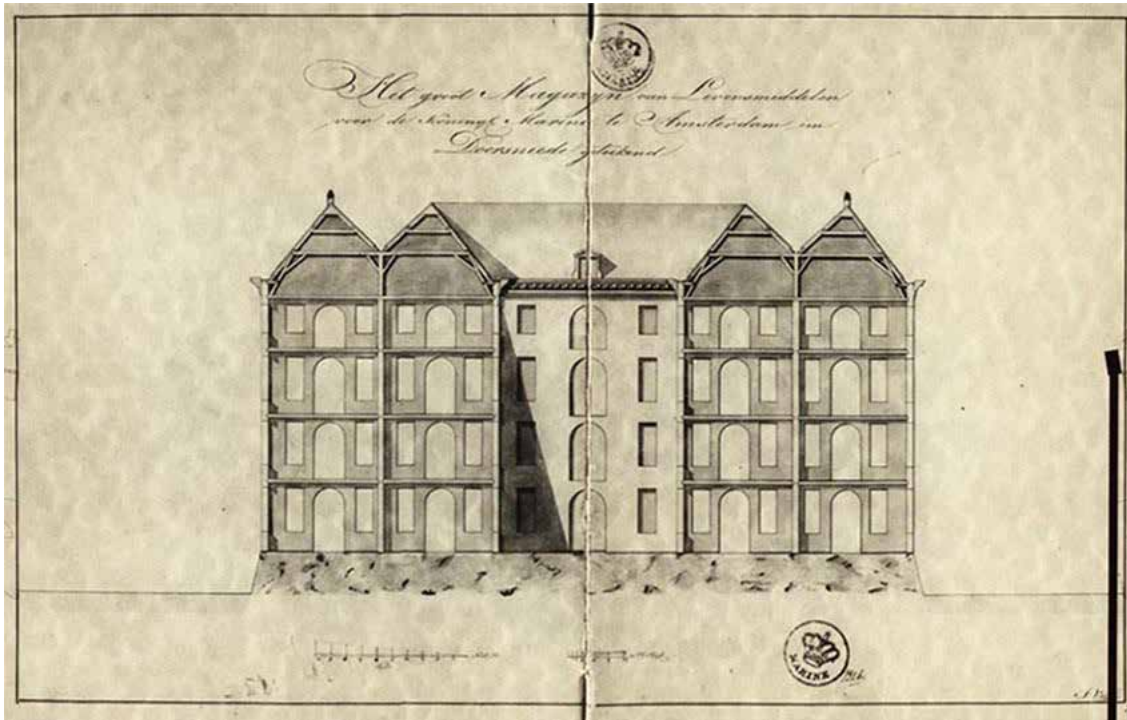 MARINE
Het groot Magazyn van Levensmiddelen
voor de Koningl. Marine te Amsterdam in
Doorsneede geteekend
MARINE